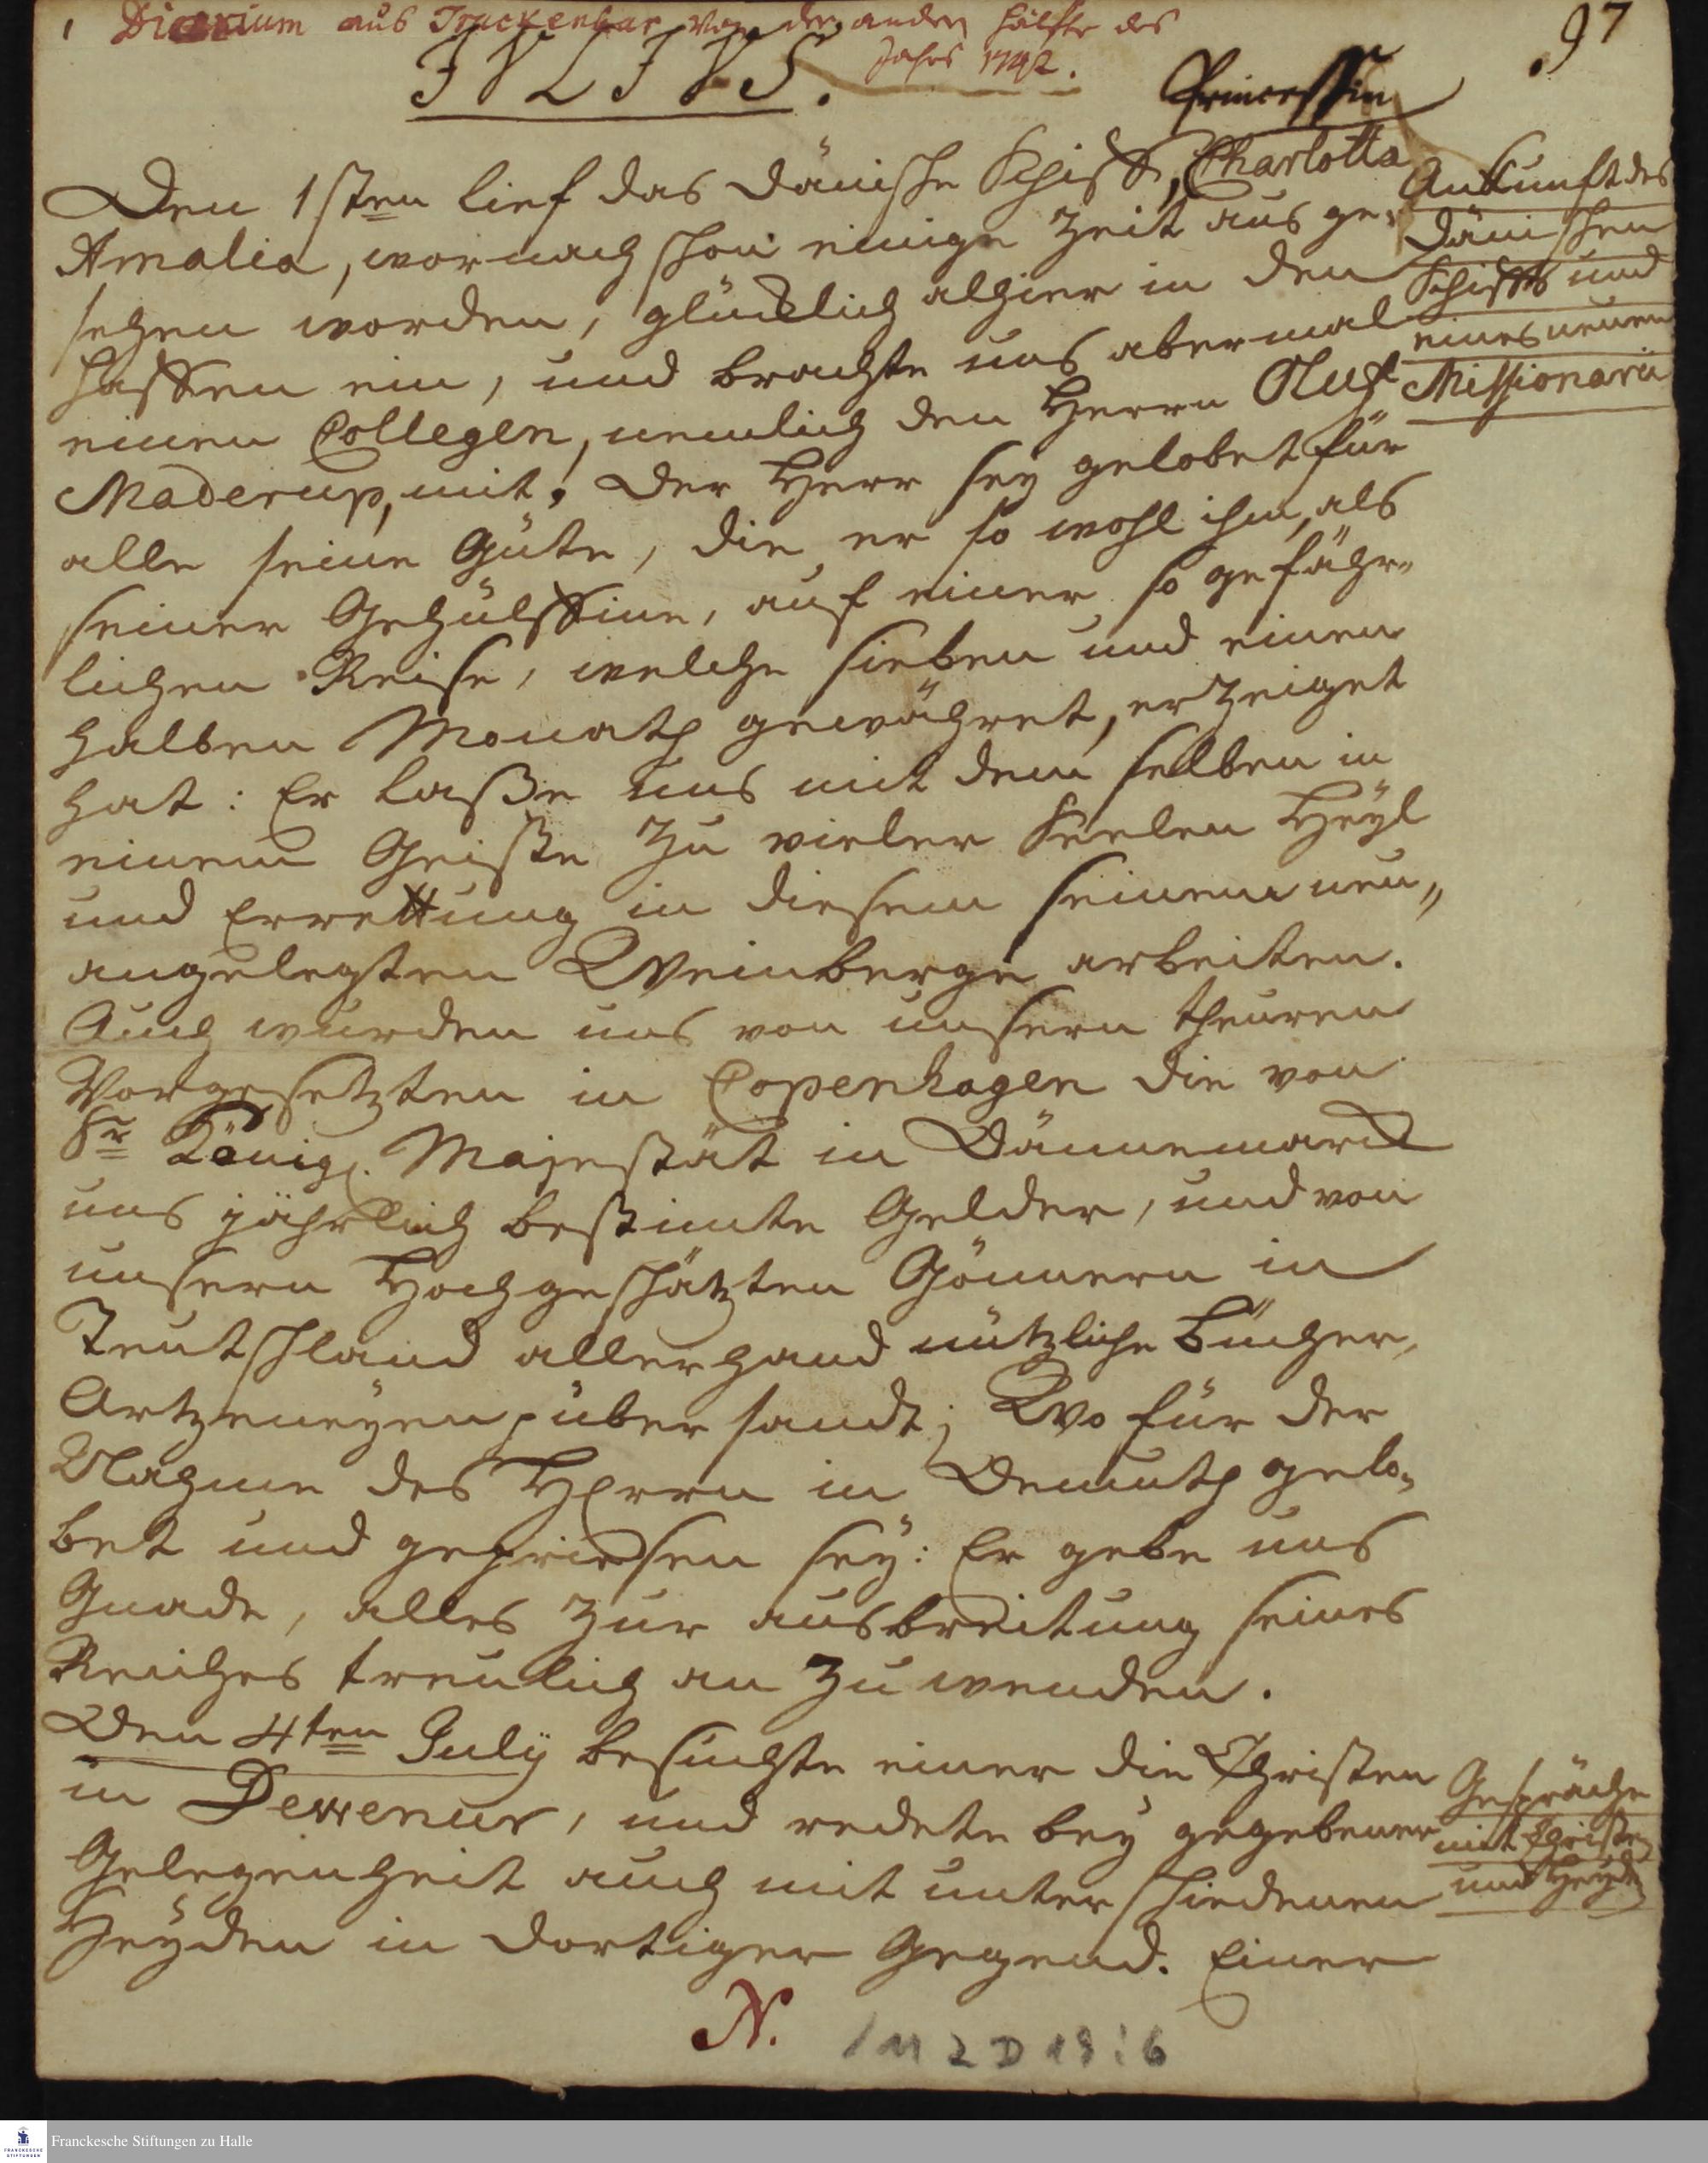 Diarium aus Tranckenbar von der andern Hälfte des
Jahrs 1742.
97
JVLIVS.
Princessin
Den 1sten lief das Dänische Schiff, Charlotta
Amalia, wornach schon einige Zeit aus ge-
sehen worden, glücklich alhier in den
Haffen ein, und brachte uns abermal
einen Collegen, nemlich den Herrn Oluf
Maderup, mit. Der Herr sey gelobet für
alle seine Güte, die er so wohl ihm, als
seiner Gehülffinn, auf einer so gefähr-
lichen Reise, welche sieben und einen
halben Monath gewähret, erzeiget
hat: Er laße uns mit dem selben in
einem Geiste zu vieler Seelen Heyl
und Errettung in diesem seinem neu-
angelegten Weinberge arbeiten.
Auch wurden uns von unsern theuren
Vorgesetzten in Copenhagen die von
Sr Königl. Majestät in Dännemarck
uns jährlich bestimte Gelder, und von
unsern Hochgeschätzten Gönnern in
Teutschland allerhand nützliche Bücher,
Artzeneyen übersandt; Wofür der
Nahme des HErrn in Demuth gelo-
bet und gepriesen sey: Er gebe uns
Gnade, alles zur ausbreitung seines
Reiches treulich an zu wenden.
Den 4ten July besuchte einer die Christen
in Dewenur, und redete bey gegebener
Gelegenheit auch mit unterschiedenen
Heyden in dortiger Gegend. Einer
Ankunft des
Dänischen
Schiffs und
eines neuen
Missionarii
Gespräche
mit Christen
und Heyden
N.
1 M 2 D 19 : 6
Franckesche Stiftungen zu Halle